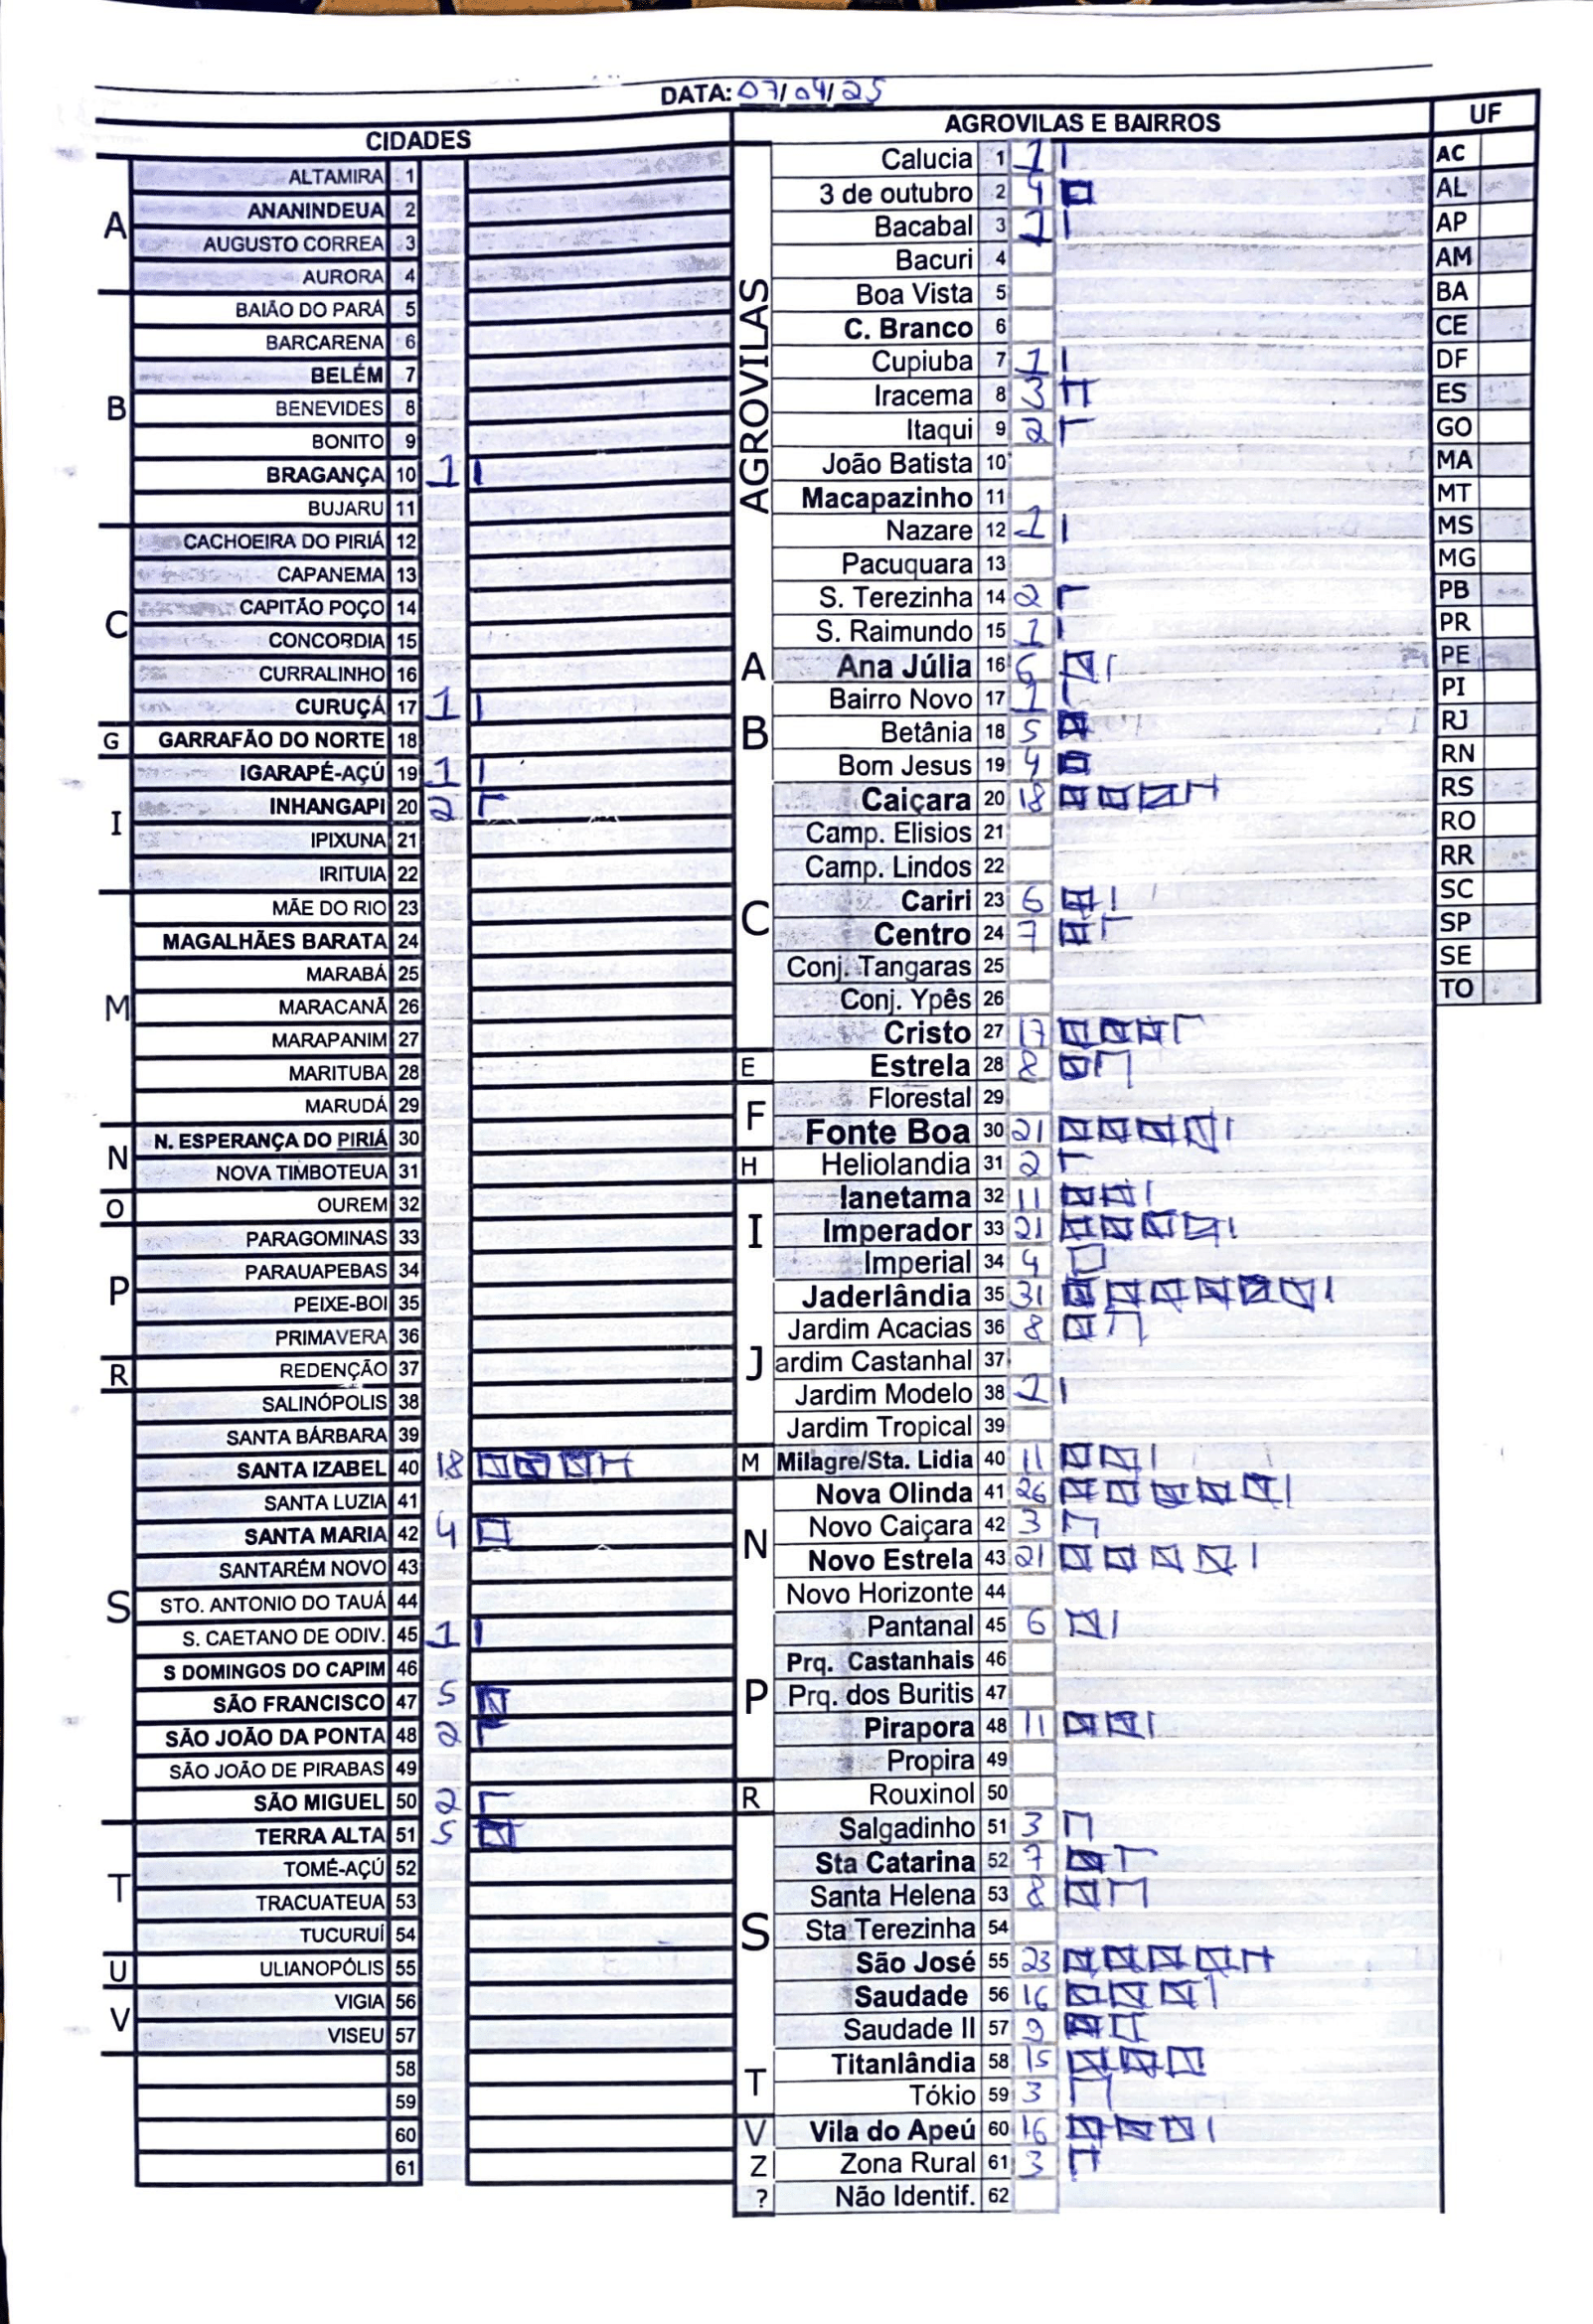 DATA: 07/04/25
CIDADES
A
ALTAMIRA 1
ANANINDEUA 2
AUGUSTO CORREA 3
AURORA 4
B
BAIÃO DO PARÁ 5
BARCARENA 6
BELÉM 7
BENEVIDES 8
BONITO 9
BRAGANÇA 10 1
BUJARU 11
C
CACHOEIRA DO PIRIÁ 12
CAPANEMA 13
CAPITÃO POÇO 14
CONCORDIA 15
CURRALINHO 16
CURUÇÁ 17 1
G
GARRAFÃO DO NORTE 18
I
IGARAPÉ-AÇÚ 19 1
INHANGAPI 20 2
IPIXUNA 21
IRITUIA 22
M
MÃE DO RIO 23
MAGALHÃES BARATA 24
MARABÁ 25
MARACANÃ 26
MARAPANIM 27
MARITUBA 28
MARUDÁ 29
N
N. ESPERANÇA DO PIRIÁ 30
NOVA TIMBOTEUA 31
O
OUREM 32
P
PARAGOMINAS 33
PARAUAPEBAS 34
PEIXE-BOI 35
PRIMAVERA 36
R
REDENÇÃO 37
S
SALINÓPOLIS 38
SANTA BÁRBARA 39
SANTA IZABEL 40 18
SANTA LUZIA 41
SANTA MARIA 42 4
SANTARÉM NOVO 43
STO. ANTONIO DO TAUÁ 44
S. CAETANO DE ODIV. 45 1
S DOMINGOS DO CAPIM 46
SÃO FRANCISCO 47 5
SÃO JOÃO DA PONTA 48 2
SÃO JOÃO DE PIRABAS 49
SÃO MIGUEL 50 2
T
TERRA ALTA 51 5
TOMÉ-AÇÚ 52
TRACUATEUA 53
TUCURUÍ 54
U
ULIANOPÓLIS 55
V
VIGIA 56
VISEU 57
58
59
60
61
AGROVILAS E BAIRROS
AGROVILAS
Calucia 1 1
3 de outubro 2 4
Bacabal 3 1
Bacuri 4
Boa Vista 5
C. Branco 6
Cupiuba 7 1
Iracema 8 3
Itaqui 9 2
João Batista 10
Macapazinho 11
Nazare 12 1
Pacuquara 13
S. Terezinha 14 2
S. Raimundo 15 1
A
Ana Júlia 16 6
B
Bairro Novo 17 1
Betânia 18 5
Bom Jesus 19 4
C
Caiçara 20 18
Camp. Elisios 21
Camp. Lindos 22
Cariri 23 6
Centro 24 7
Conj. Tangaras 25
Conj. Ypês 26
Cristo 27 17
E
Estrela 28 8
F
Florestal 29
Fonte Boa 30 21
H
Heliolandia 31 2
I
Ianetama 32 11
Imperador 33 21
Imperial 34 4
J
Jaderlândia 35 31
Jardim Acacias 36 8
ardim Castanhal 37
Jardim Modelo 38 1
Jardim Tropical 39
M
Milagre/Sta. Lidia 40 11
N
Nova Olinda 41 26
Novo Caiçara 42 3
Novo Estrela 43 21
Novo Horizonte 44
P
Pantanal 45 6
Prq. Castanhais 46
Prq. dos Buritis 47
Pirapora 48 11
Propira 49
R
Rouxinol 50
S
Salgadinho 51 3
Sta Catarina 52 7
Santa Helena 53 8
Sta Terezinha 54
São José 55 23
Saudade 56 16
Saudade II 57 9
T
Titanlândia 58 15
Tókio 59 3
V
Vila do Apeú 60 16
Z
Zona Rural 61 3
?
Não Identif. 62
UF
AC
AL
AP
AM
BA
CE
DF
ES
GO
MA
MT
MS
MG
PB
PR
PE
PI
RJ
RN
RS
RO
RR
SC
SP
SE
TO